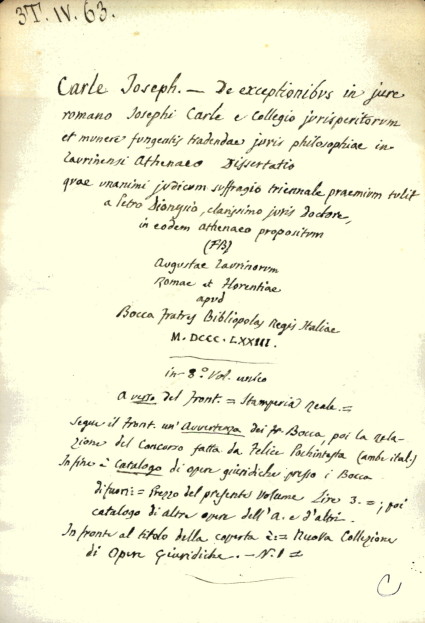 3T. IV. 63.
Carle Joseph. — De exceptionibus in jure
romano Josephi Carle e Collegio jurisperitorum
et munere fungentis tradendae juris philosophiae in
Taurinensi Athenaeo Dissertatio
quae unanimi judicum suffragio triennale praemium tulit
a Petro Dionysio, clarissimo juris doctore,
in eodem athenaeo propositum
(FB)
Augustae Taurinorum
Romae et Florentiae
apud
Bocca fratres Bibliopolas Regis Italiae
M.DCCC.LXXIII.
in 8.° Vol. unico
A verso del front. = Stamperia Reale. =
Segue il front. un' Avvertenza dei fr. Bocca, poi la rela-
zione del Concorso fatta da Felice (ambe ital.)
In fine è Catalogo di opere giuridiche presso i Bocca
di fuori: = Prezzo del presente volume Lire 3. = ; poi
catalogo di altre opere dell'A. e d'altri.
In fronte al titolo della coperta è: = Nuova Collezione
di Opere Giuridiche. — N. 1 =
C